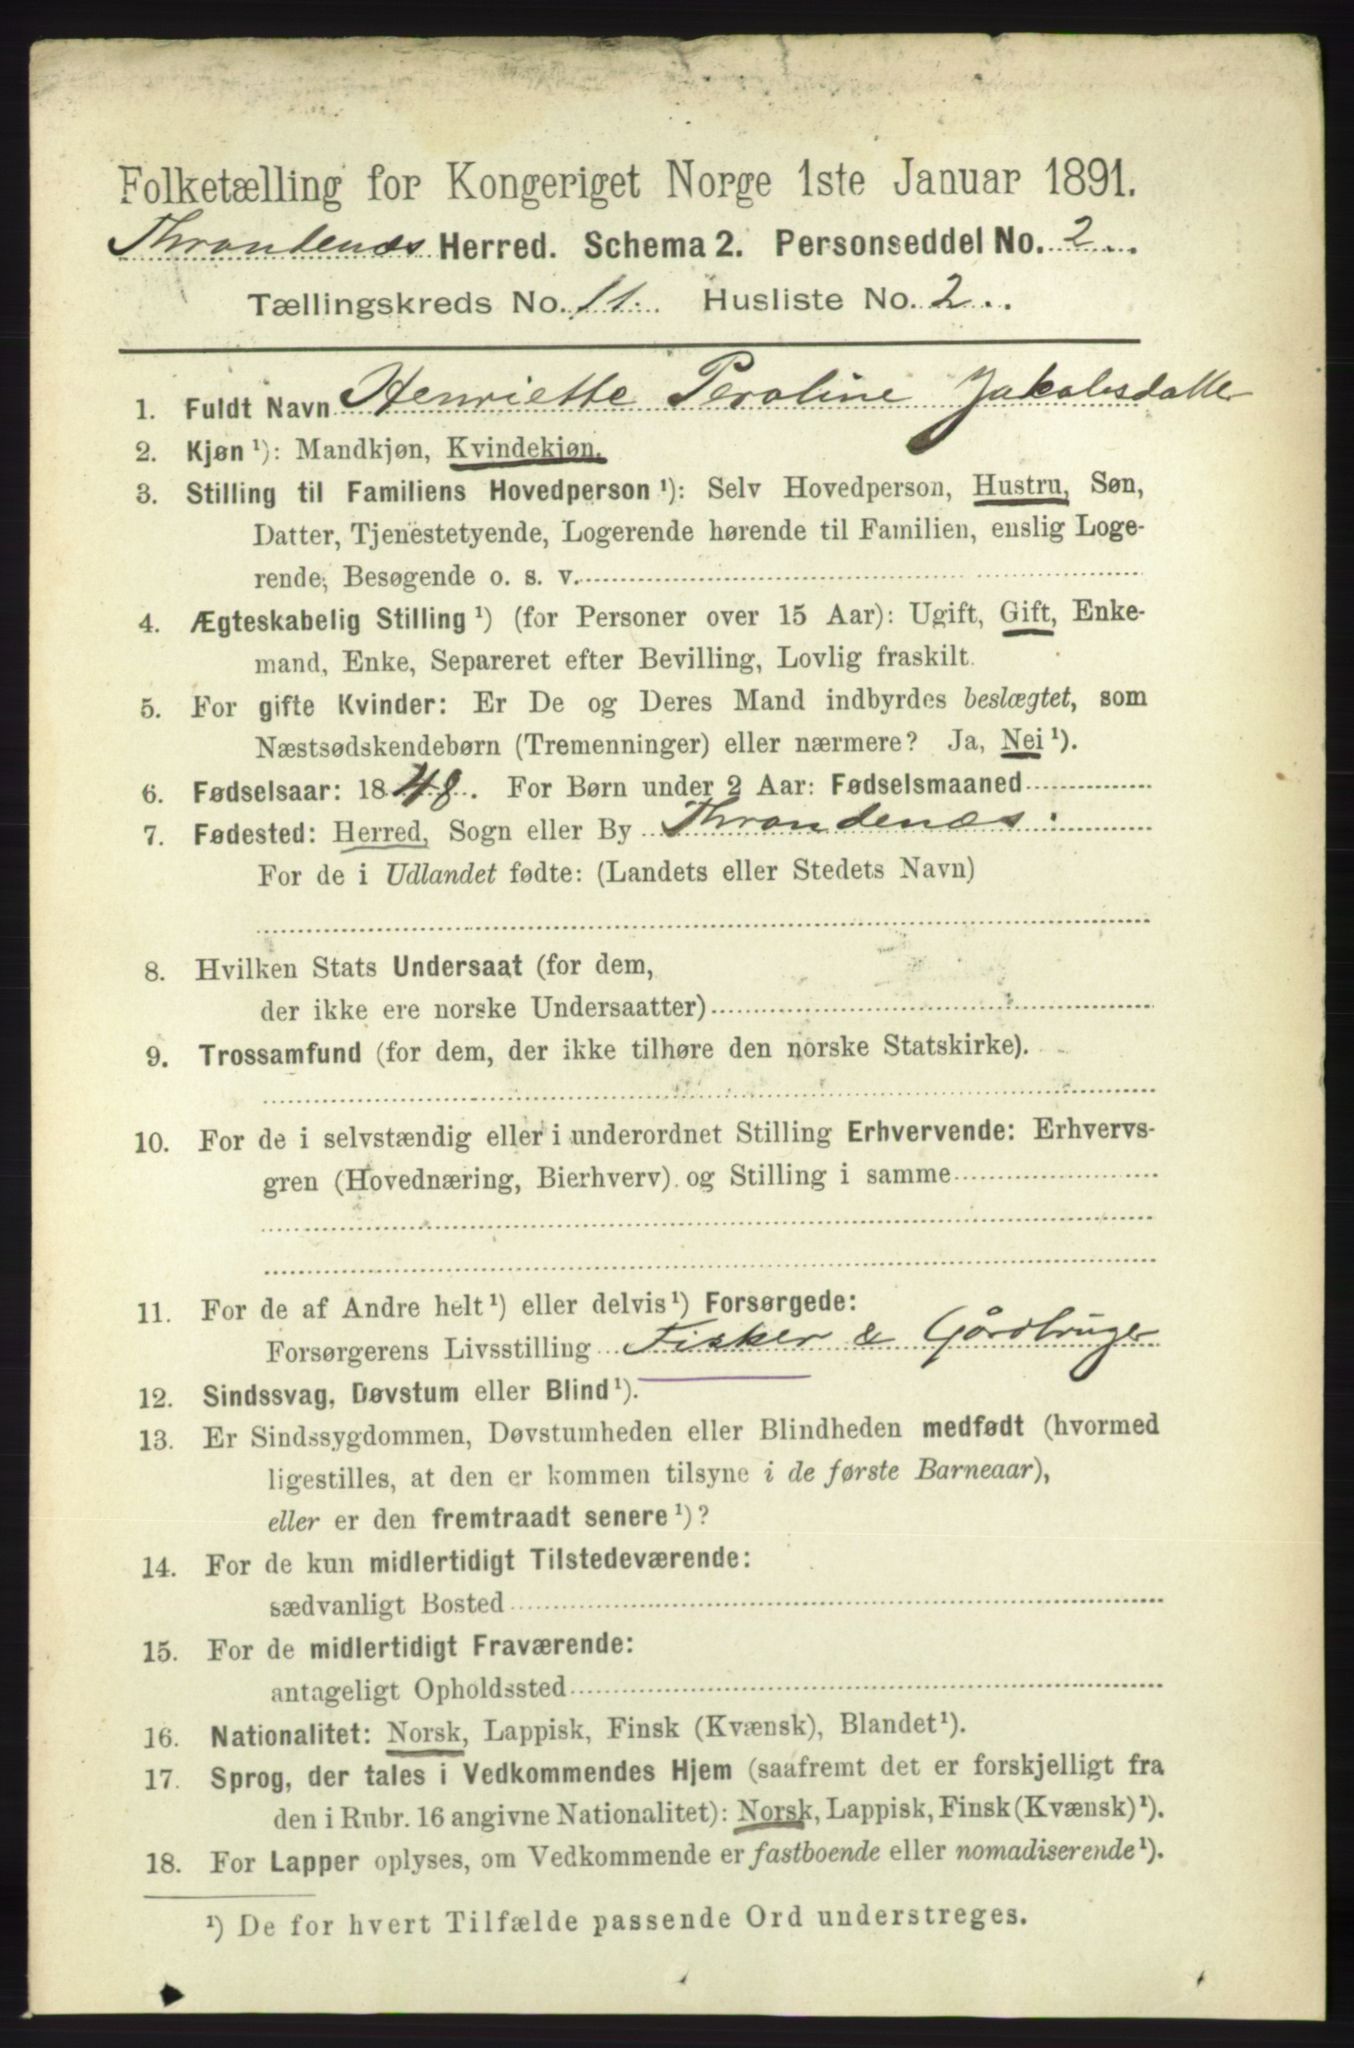 Folketælling for Kongeriget Norge 1ste Januar 1891.
Throndenæs Herred. Schema 2. Personseddel No. 2.
Tællingskreds No. 11. Husliste No. 2.
1. Fuldt Navn Henriette Peroline Jakobsdatter
2. Kjøn ¹): Mandkjøn, Kvindekjøn.
3. Stilling til Familiens Hovedperson ¹): Selv Hovedperson, Hustru, Søn,
Datter, Tjenestetyende, Logerende hørende til Familien, enslig Loge-
rende, Besøgende o. s. v.
4. Ægteskabelig Stilling ¹) (for Personer over 15 Aar): Ugift, Gift, Enke-
mand, Enke, Separeret efter Bevilling, Lovlig fraskilt.
5. For gifte Kvinder: Er De og Deres Mand indbyrdes beslægtet, som
Næstsødskendebørn (Tremenninger) eller nærmere? Ja, Nei ¹).
6. Fødselsaar: 1848. For Børn under 2 Aar: Fødselsmaaned
7. Fødested: Herred, Sogn eller By Throndenæs.
For de i Udlandet fødte: (Landets eller Stedets Navn)
8. Hvilken Stats Undersaat (for dem,
der ikke ere norske Undersaatter)
9. Trossamfund (for dem, der ikke tilhøre den norske Statskirke).
10. For de i selvstændig eller i underordnet Stilling Erhvervende: Erhvervs-
gren (Hovednæring, Bierhverv) og Stilling i samme
11. For de af Andre helt ¹) eller delvis ¹) Forsørgede:
Forsørgerens Livsstilling Fisker & Gårdbruger
12. Sindssvag, Døvstum eller Blind ¹).
13. Er Sindssygdommen, Døvstumheden eller Blindheden medfødt (hvormed
ligestilles, at den er kommen tilsyne i de første Barneaar),
eller er den fremtraadt senere ¹)?
14. For de kun midlertidigt Tilstedeværende:
sædvanligt Bosted
15. For de midlertidigt Fraværende:
antageligt Opholdssted
16. Nationalitet: Norsk, Lappisk, Finsk (Kvænsk), Blandet ¹).
17. Sprog, der tales i Vedkommendes Hjem (saafremt det er forskjelligt fra
den i Rubr. 16 angivne Nationalitet): Norsk, Lappisk, Finsk (Kvænsk) ¹).
18. For Lapper oplyses, om Vedkommende er fastboende eller nomadiserende ¹).
¹) De for hvert Tilfælde passende Ord understreges.